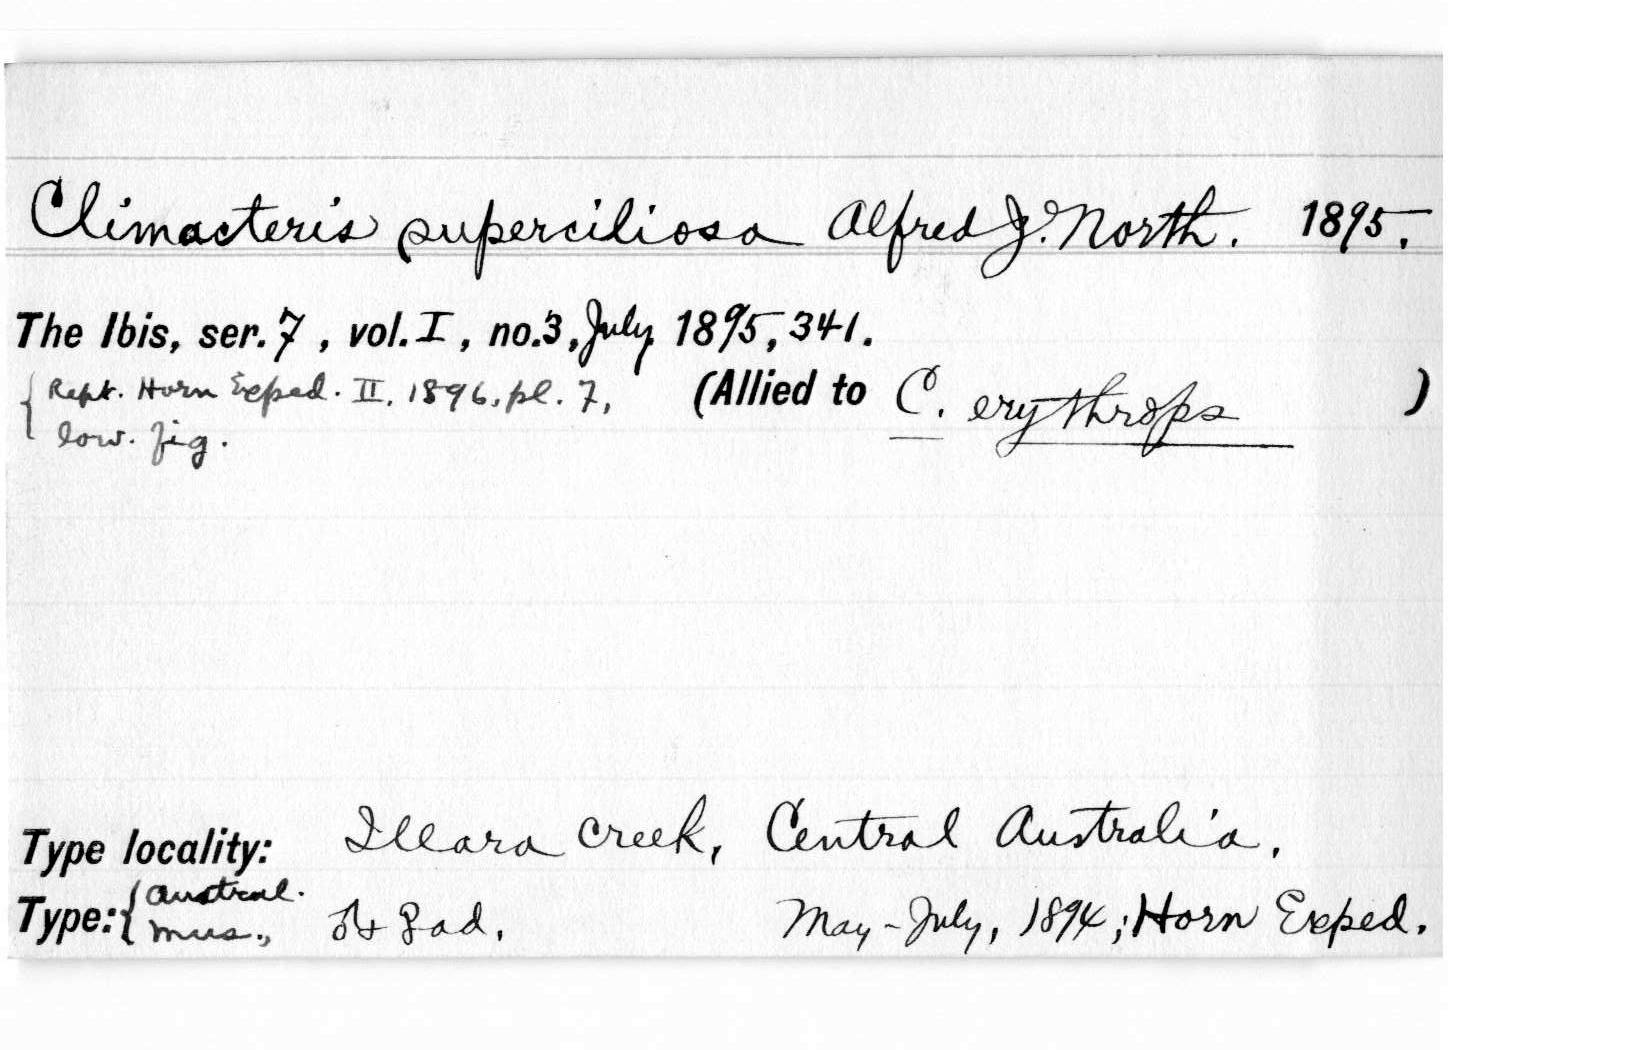 Climacteris superciliosa Alfred J. North. 1895.
The Ibis, ser. 7, vol. I, no. 3, July 1895, 341.
{Rept. Horn Exped. II, 1896, pl. 7, (Allied to C. erythrops)
low. fig.
Type locality: Illara Creek, Central Australia.
Type: {Austral. Mus., ad. May-July, 1894; Horn Exped.